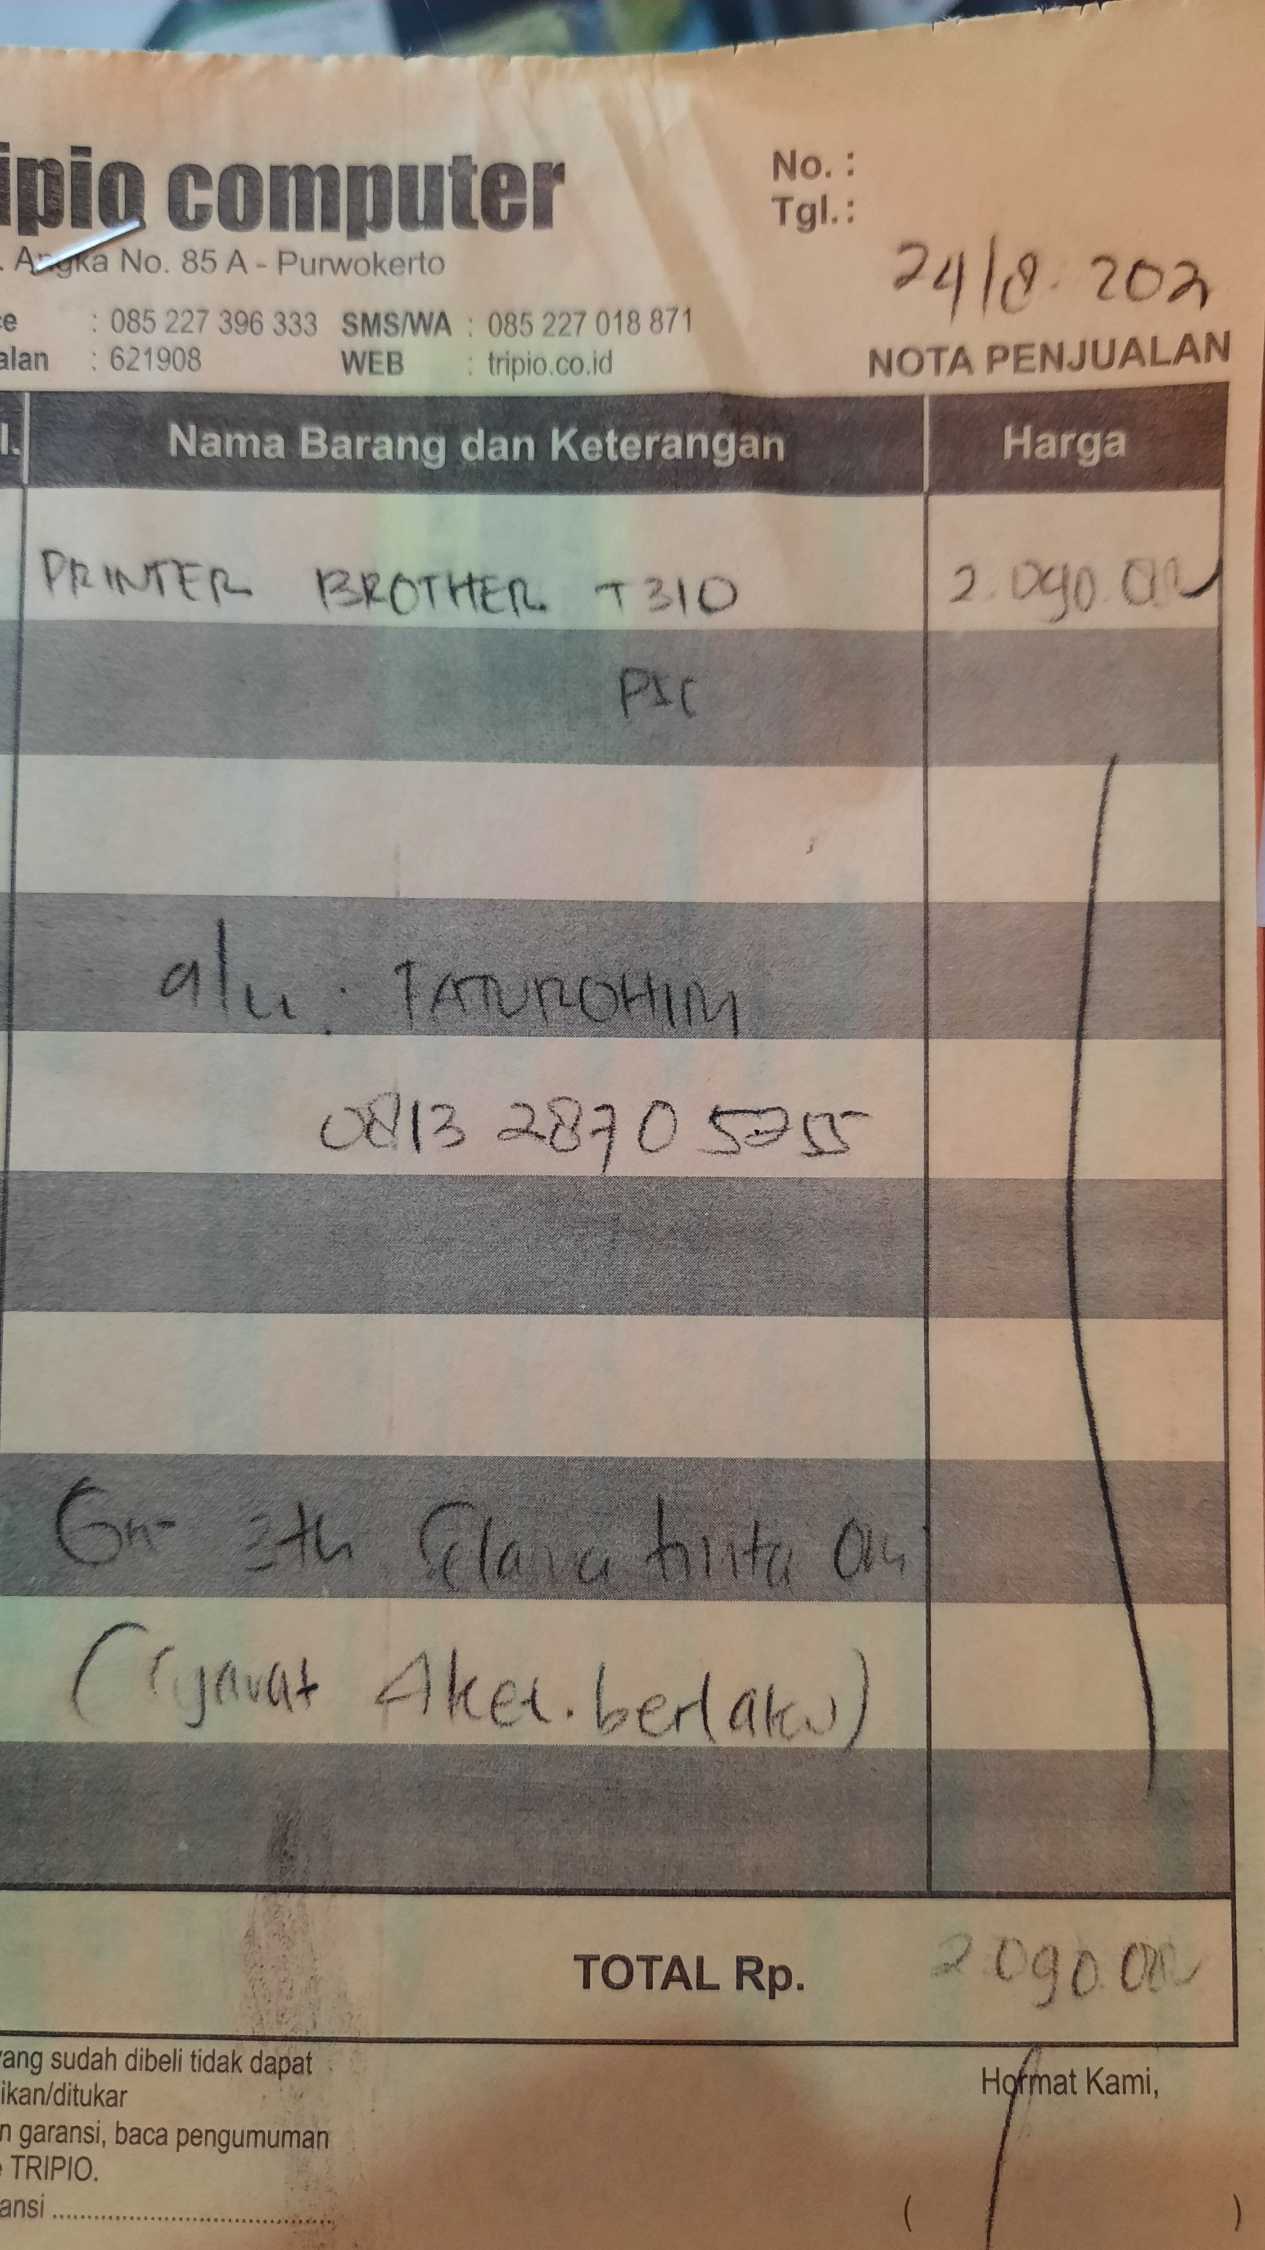 ipio computer
. Angka No. 85 A - Purwokerto
ce : 085 227 396 333 SMS/WA : 085 227 018 871
alan : 621908 WEB : tripio.co.id
No. :
Tgl. :
24/8. 202
NOTA PENJUALAN
l. Nama Barang dan Keterangan Harga
PRINTER BROTHER T310 2.090.000
a/n : FATUROHIM
0813 2870 5755
3th Selama tinta Ori
(Syarat &ket. berlaku)
TOTAL Rp. 2.090.000
yang sudah dibeli tidak dapat
ikan/ditukar
n garansi, baca pengumuman
e TRIPIO.
ansi ........................................
Hormat Kami,
( )